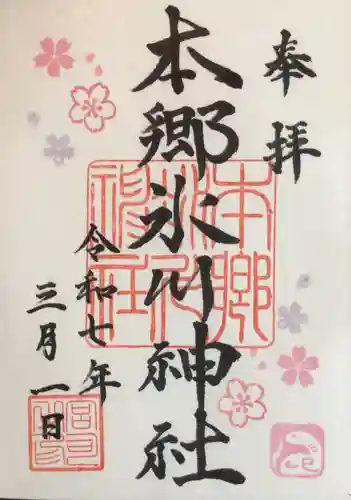 奉拝
本郷氷川神社
令和七年
三月一日
本郷氷川神社
巳